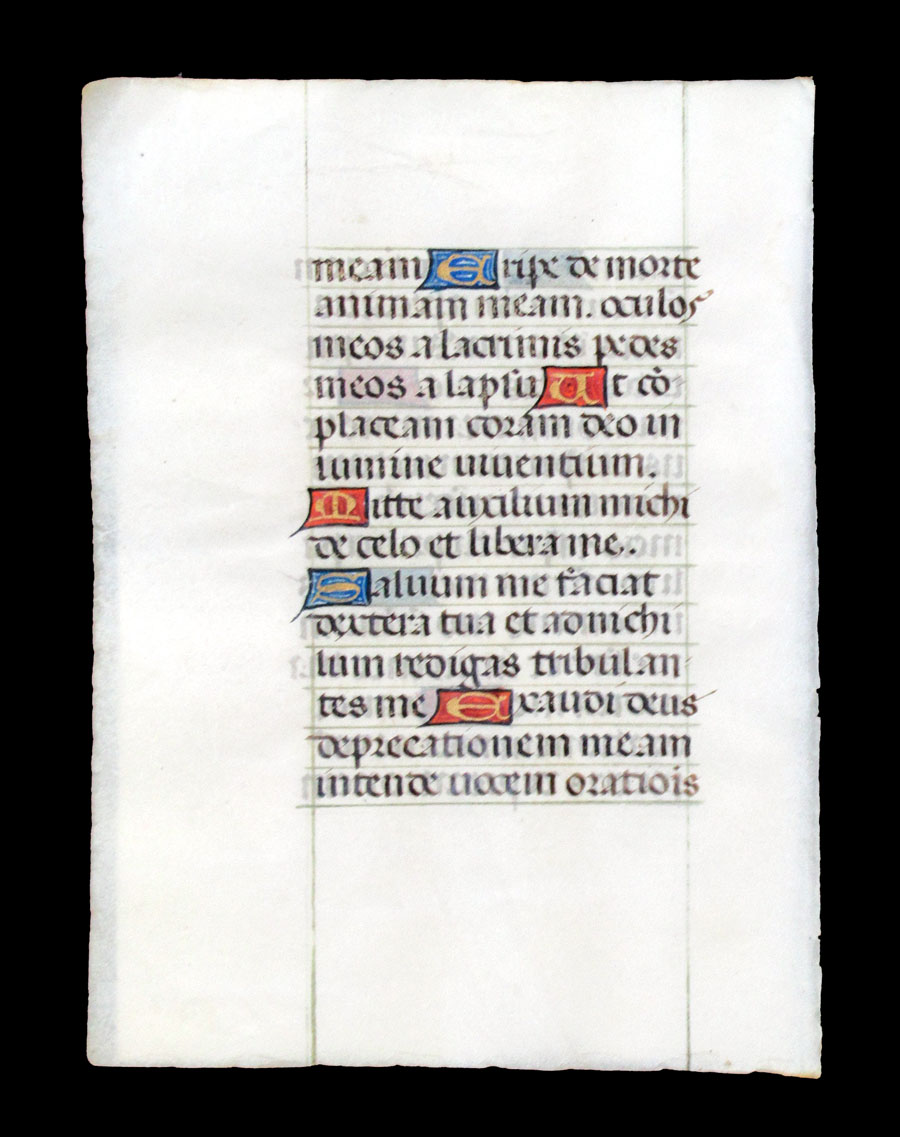 meam Eripe de morte
animam meam. oculos
meos a lacrimis pedes
meos a lapsu Ut cō
placeam coram deo in
lumine uiuentium.
Mitte auxilium michi
de celo et libera me.
Saluum me faciat
dextera tua et adnichi
lum redigas tribulan-
tes me Exaudi deus
deprecationem meam
intende uocem oratiōis